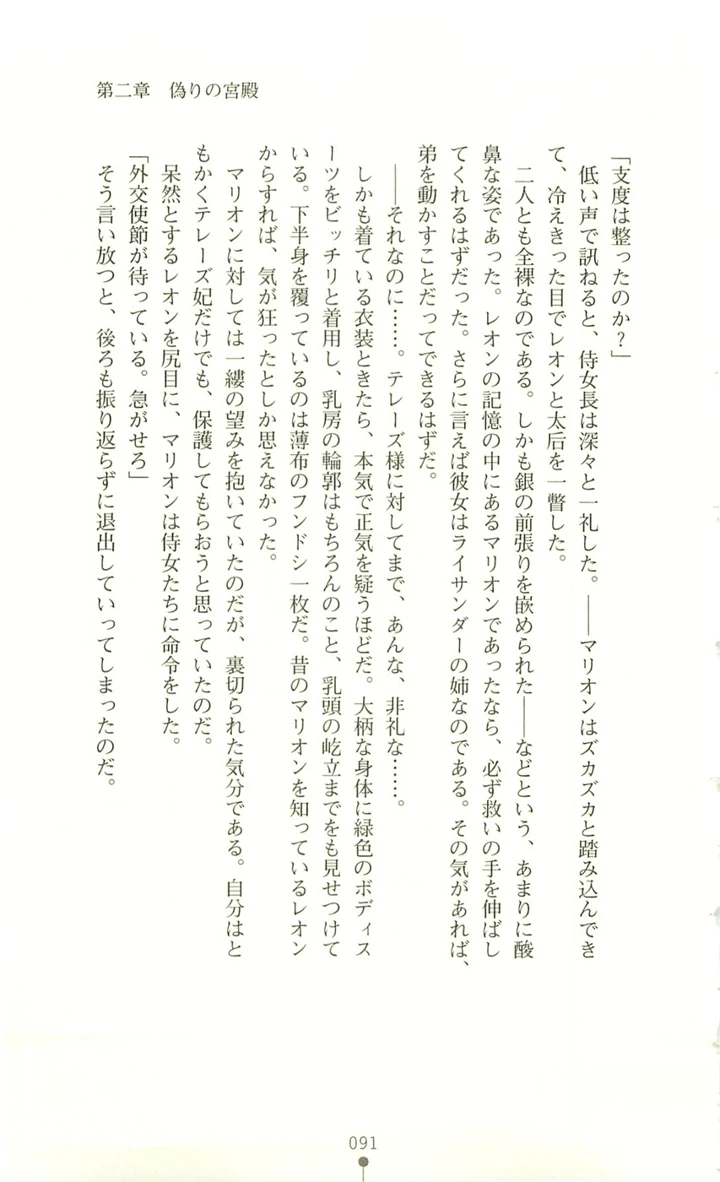 第二章　偽りの宮殿
「支度は整ったのか？」
　低い声で訊ねると、侍女長は深々と一礼した。――マリオンはズカズカと踏み込んでき
て、冷えきった目でレオンと太后を一瞥した。
　二人とも全裸なのである。しかも銀の前張りを嵌められた――などという、あまりに酸
鼻な姿であった。レオンの記憶の中にあるマリオンであったなら、必ず救いの手を伸ばし
てくれるはずだった。さらに言えば彼女はライサンダーの姉なのである。その気があれば、
弟を動かすことだってできるはずだ。
　――それなのに……。テレーズ様に対してまで、あんな、非礼な……。
　しかも着ている衣装ときたら、本気で正気を疑うほどだ。大柄な身体に緑色のボディス
ーツをピッチリと着用し、乳房の輪郭はもちろんのこと、乳頭の屹立までをも見せつけて
いる。下半身を覆っているのは薄布のフンドシ一枚だ。昔のマリオンを知っているレオン
からすれば、気が狂ったとしか思えなかった。
　マリオンに対しては一縷の望みを抱いていたのだが、裏切られた気分である。自分はと
もかくテレーズ妃だけでも、保護してもらおうと思っていたのだ。
　呆然とするレオンを尻目に、マリオンは侍女たちに命令をした。
「外交使節が待っている。急がせろ」
　そう言い放つと、後ろも振り返らずに退出していってしまったのだ。
091